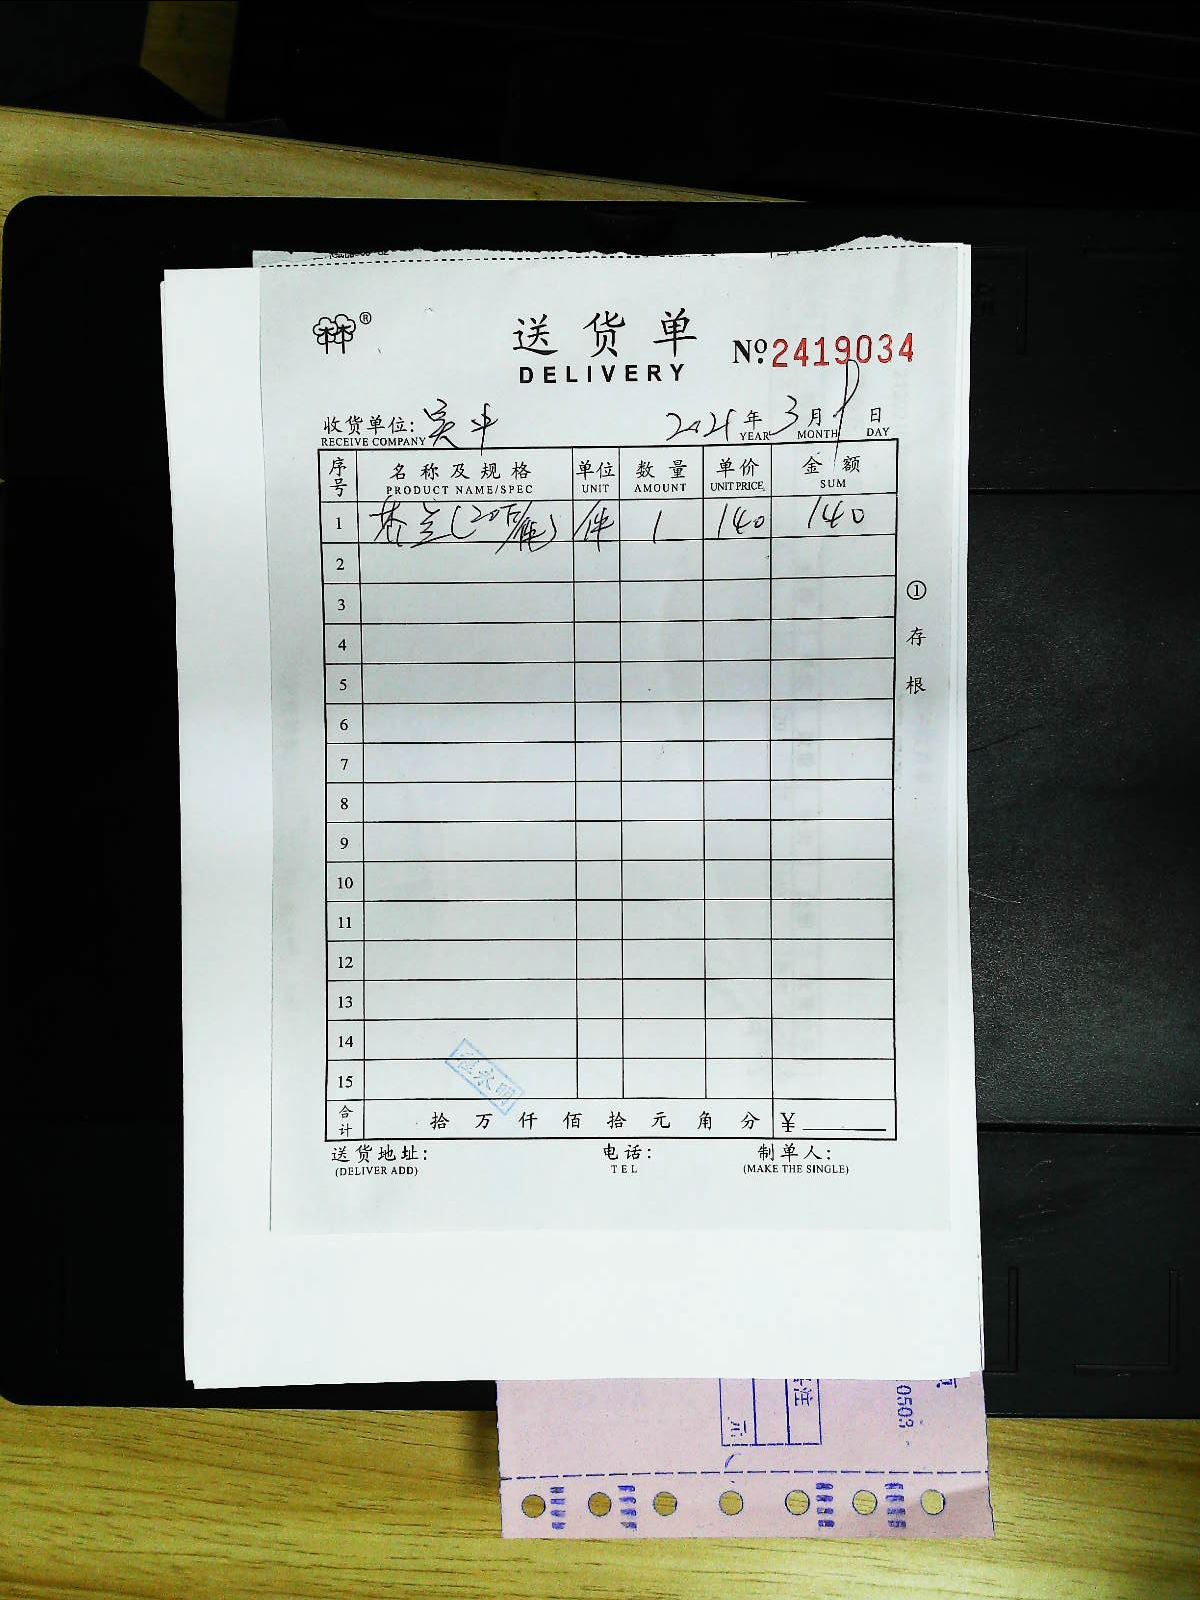 林®
送货单
DELIVERY
Nº2419034
收货单位: 吴斗
RECEIVE COMPANY
2021年3月1日
YEAR MONTH DAY
序号 名称及规格 单位 数量 单价 金额
PRODUCT NAME/SPEC UNIT AMOUNT UNIT PRICE SUM
1 芥兰(20斤/件) 件 1 140 140
2
3
4
5
6
7
8
9
10
11
12
13
14
15
永明
合计 拾 万 仟 佰 拾 元 角 分 ¥
送货地址: 电话: 制单人:
(DELIVER ADD) TEL (MAKE THE SINGLE)
①存根
注
示
0503